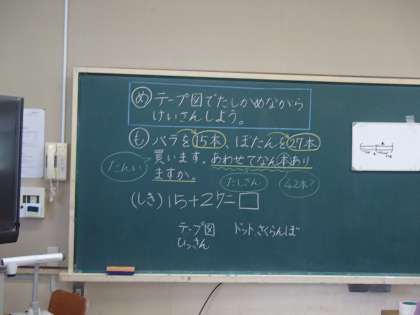 め テープ図でたしかめながら
けいさんしよう。
も バラを15本、ぼたんを27本
買います。あわせてなん本あり
ますか。
たんい
たしざん
42本?
(しき) 15+27=□
テープ図 ドット、さくらんぼ
ひっさん